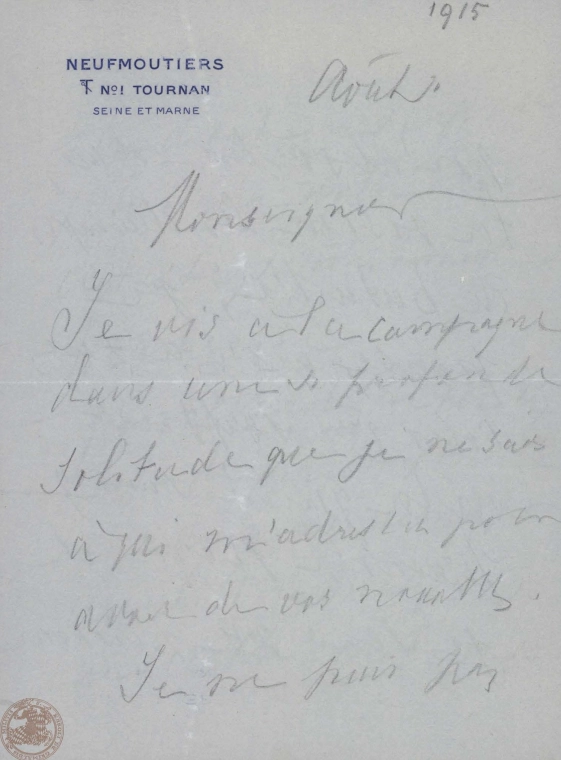 1915
NEUFMOUTIERS
T No! TOURNAN
SEINE ET MARNE
Août.
Monseigneur
Je vis a la campagne
dans une si profonde
solitude que je ne sais
à qui m'adresser pour
avoir de vos nouvelles.
Je ne puis pas